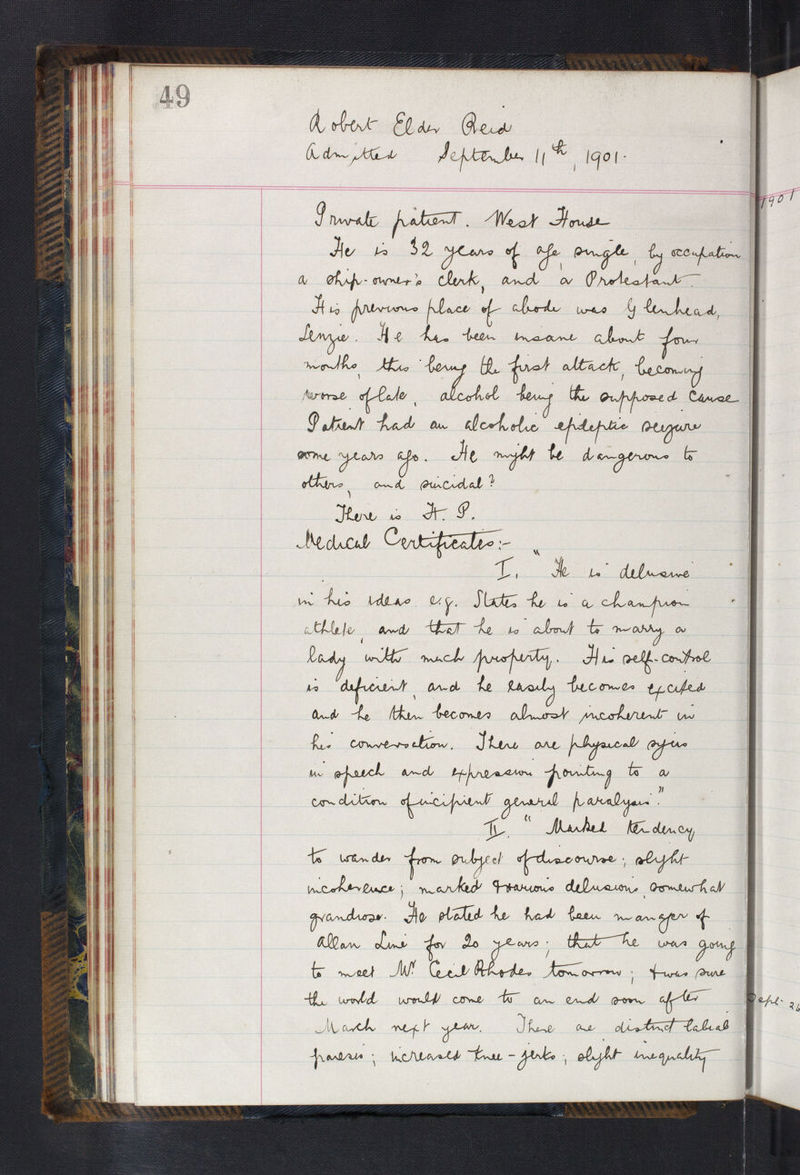 49
Robert Elder Reid
Admitted September 11th, 1901.
Private patient. West House
He is 32 years of age, single, by occupation
a ship-owner's clerk, and a Protestant.
His previous place of abode was Glenhead,
Lenzie. He has been insane about four
months, this being the first attack, becoming
worse of late, alcohol being the supposed cause
Patient had an alcoholic epileptic seizure
some years ago. He might be dangerous to
others, and suicidal?
There is H. P.
Medical Certificates:-
I. "He is delusive
in his ideas e.g. States he is a champion
athlete, and that he is about to marry a
lady with much property. His self-control
is deficient, and he easily becomes excited
and he then becomes almost incoherent in
his conversation. There are physical signs
in speech and expression pointing to a
condition of incipient general paralysis."
II. "Marked tendency
to wander from subject of discourse; slight
incoherence; marked & various delusions, somewhat
grandiose. He stated he had been manager of
Allan Line for 20 years; that he was going
to meet Mr Cecil Rhodes tomorrow; & was sure
the world would come to an end soon after
March next year. There are distinct labial
paresis; increased knee-jerks; slight inequality
1901
Sept. 26